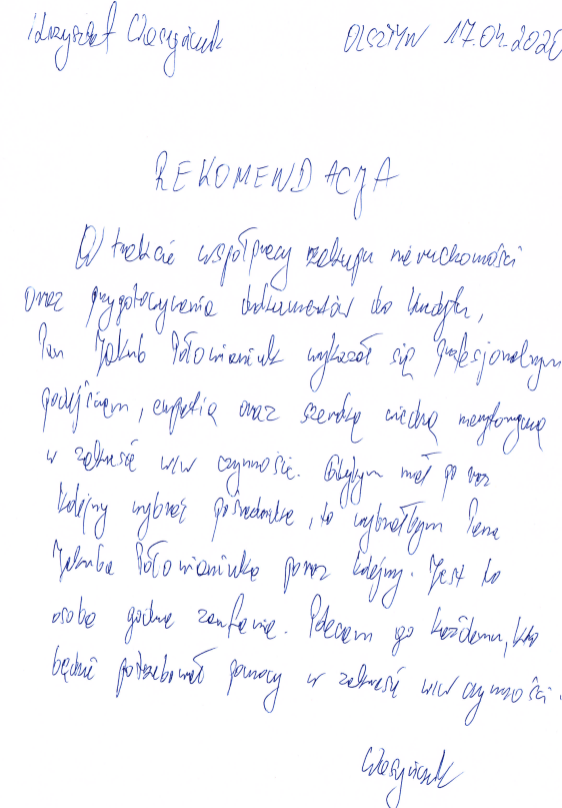 Krzysztof
OLSZTYN 17.04.202
REKOMENDACJA
W trakcie współpracy zakupu nieruchomości
oraz przygotowywania dokumentów do kredytu,
Pan Jakub Połowianiuk wykazał się profesjonalnym
podejściem, empatią oraz szeroką wiedzą merytoryczną
w zakresie w/w czynności. Gdybym miał po raz
kolejny wybrać pośrednika, to wybrałbym Pana
Jakuba Połowianiuka poraz kolejny. Jest to
osoba godna zaufania. Polecam go każdemu, kto
będzie potrzebował pomocy w zakresie w/w czynności.